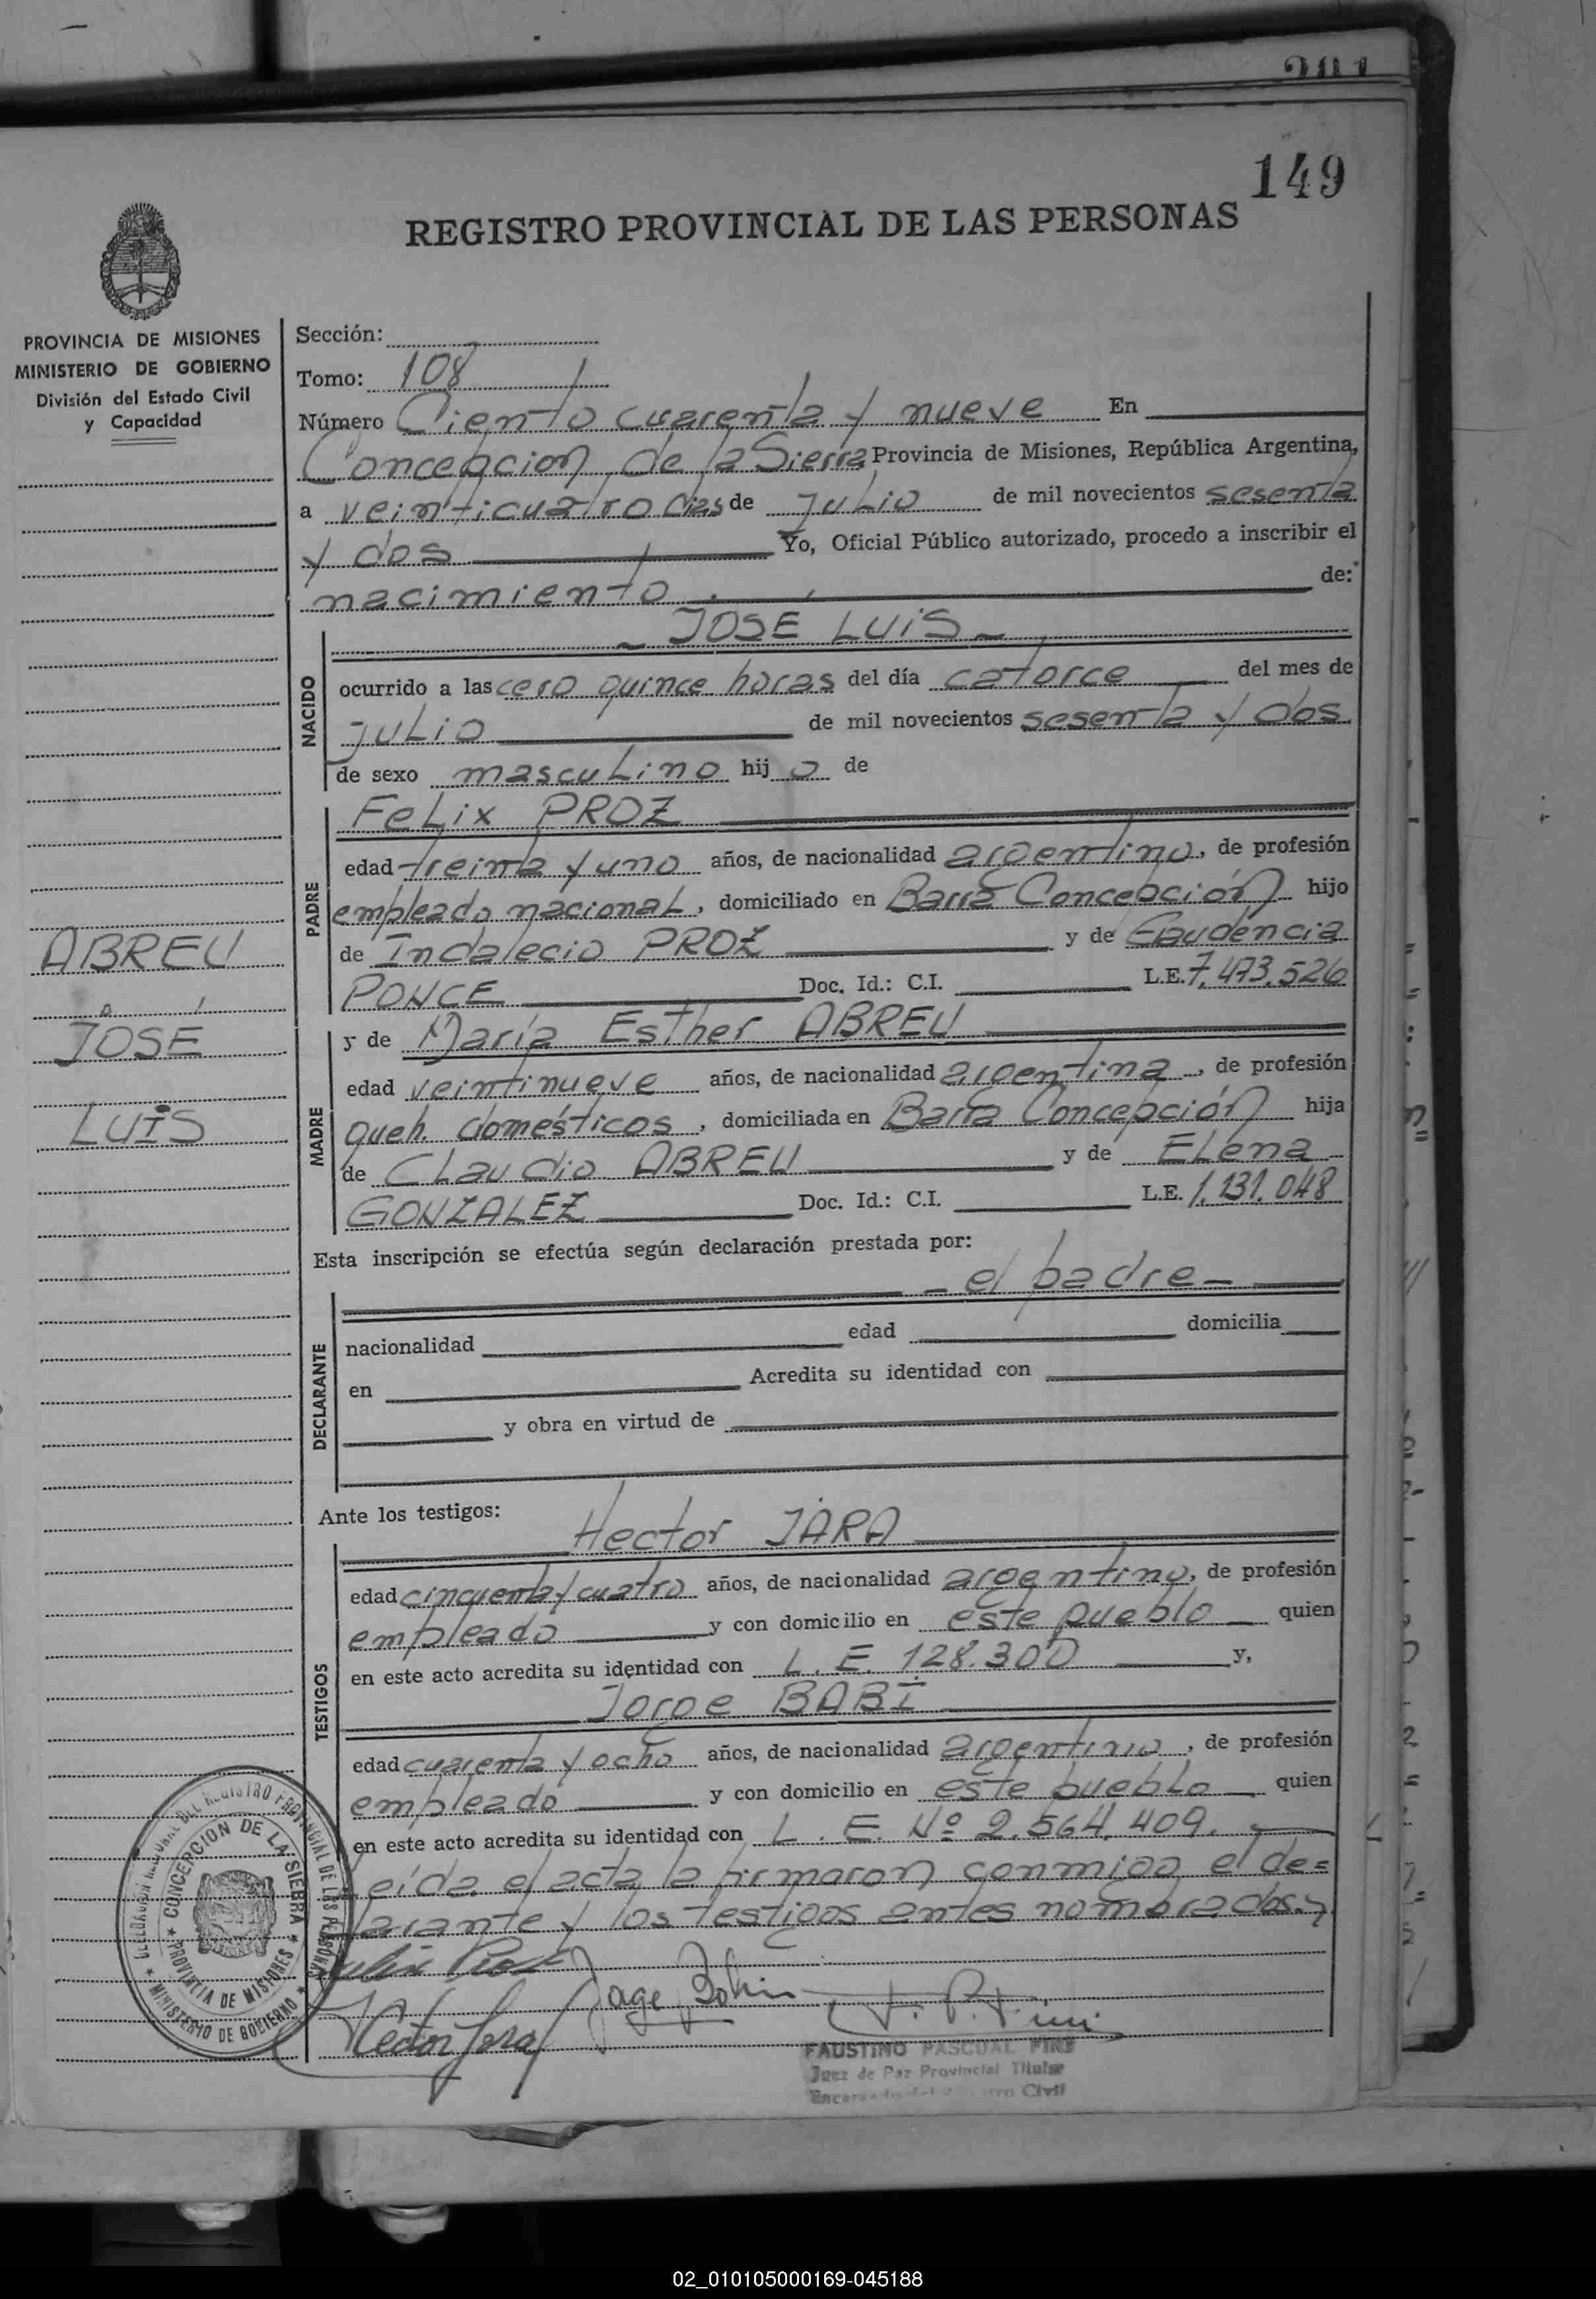 149
REGISTRO PROVINCIAL DE LAS PERSONAS
PROVINCIA DE MISIONES
MINISTERIO DE GOBIERNO
División del Estado Civil
y Capacidad
Sección:
Tomo: 108
Número Ciento cuarenta y nueve En
Concepcion de la Sierra Provincia de Misiones, República Argentina,
a veinticuatro dias de julio de mil novecientos sesenta
y dos Yo, Oficial Público autorizado, procedo a inscribir el
nacimiento de:
NACIDO
- JOSÉ LUIS -
ocurrido a las cero quince horas del día catorce del mes de
julio de mil novecientos sesenta y dos
de sexo masculino hij o de
PADRE
Felix PROZ
edad treinta y uno años, de nacionalidad argentino, de profesión
empleado nacional, domiciliado en Barra Concepción hijo
de Indalecio PROZ y de Gaudencia
PONCE Doc. Id.: C.I. L.E. 7.473.526
MADRE
y de María Esther ABREU
edad veintinueve años, de nacionalidad argentina, de profesión
queh. domésticos, domiciliada en Barra Concepción hija
de Claudio ABREU y de Elena
GONZALEZ Doc. Id.: C.I. L.E. 1.131.048
ABREU
JOSÉ
LUIS
Esta inscripción se efectúa según declaración prestada por:
- el padre -
DECLARANTE
nacionalidad edad domicilia
en Acredita su identidad con
y obra en virtud de
Ante los testigos:
TESTIGOS
Hector JARA
edad cincuenta y cuatro años, de nacionalidad argentino, de profesión
empleado y con domicilio en este pueblo quien
en este acto acredita su identidad con L. E. 128.300 y,
Jorge BABI
edad cuarenta y ocho años, de nacionalidad argentino, de profesión
empleado y con domicilio en este pueblo quien
en este acto acredita su identidad con L. E. Nº 2.564.409.
Leída el acta la firmaron conmigo el de=
larante y los testigos antes nombrados.
Hector Jara
FAUSTINO PASCUAL
Juez de Paz Provincial Titular
Civil
CONCEPCION DE LA SIERRA
PROVINCIA DE MISIONES
MINISTERIO DE GOBIERNO
DEL REGISTRO PROVINCIAL DE LAS PERSONAS
02_010105000169-045188